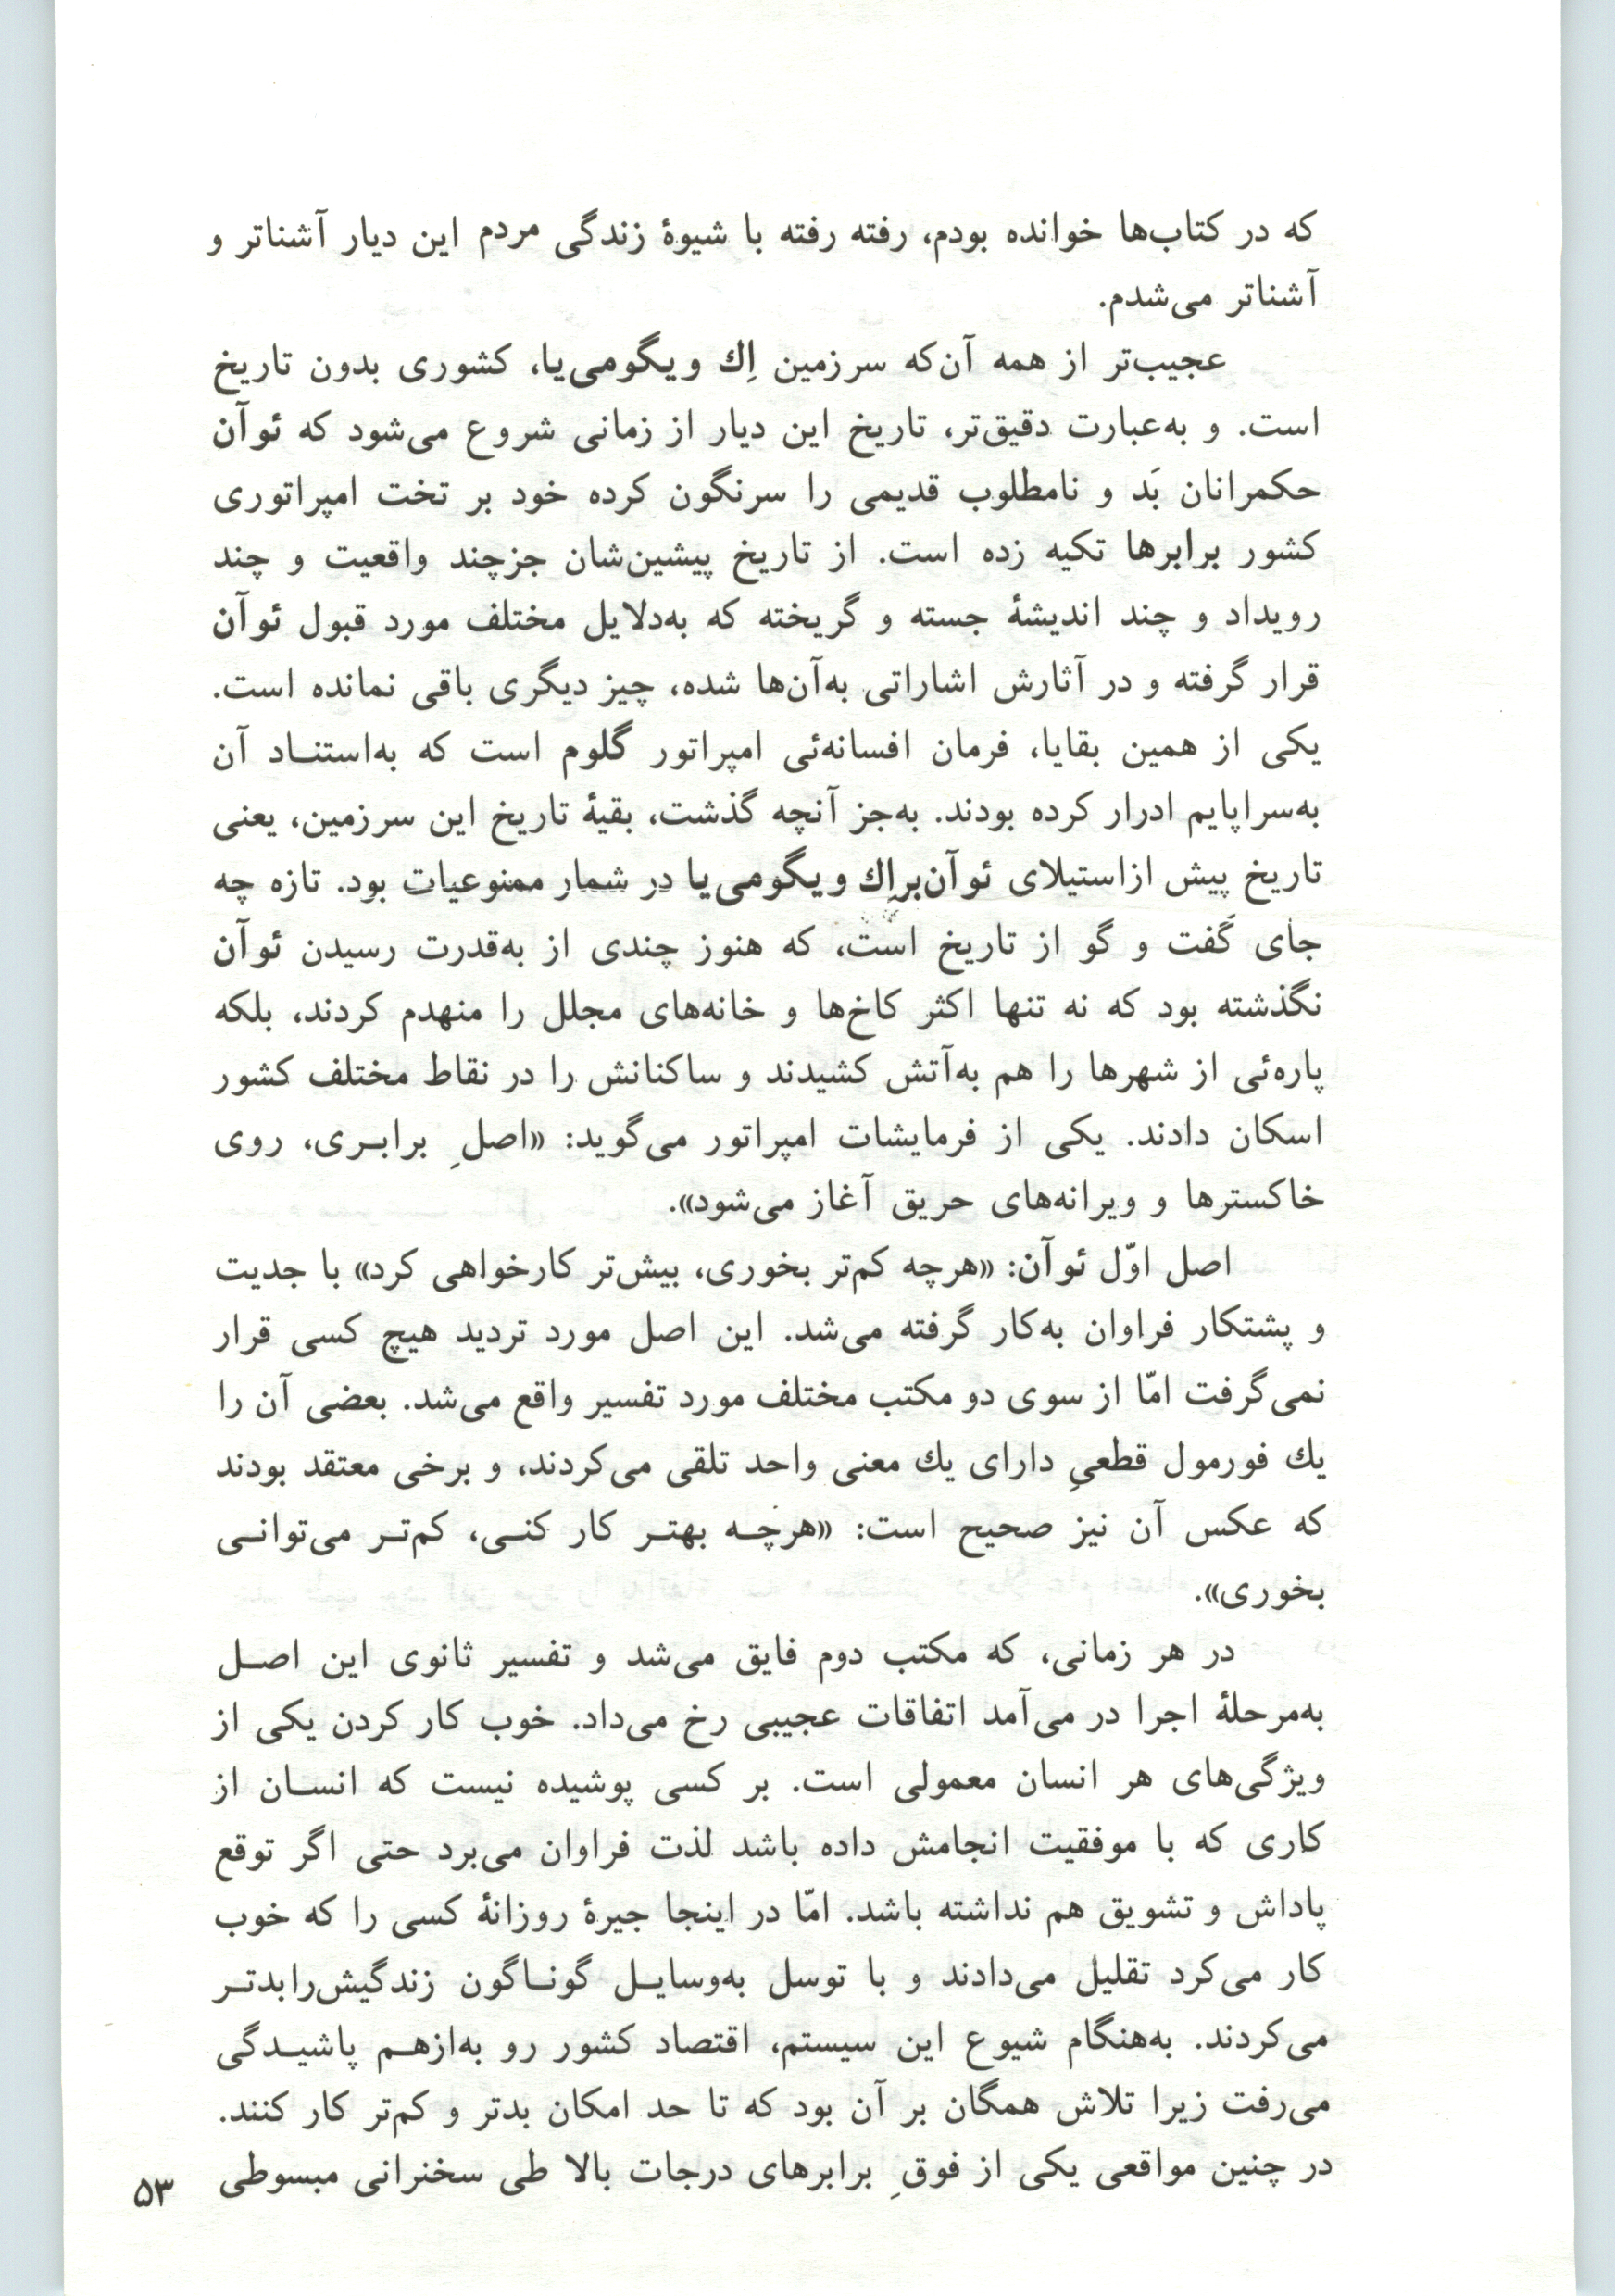 که در کتاب‌ها خوانده بودم، رفته رفته با شیوهٔ زندگی مردم این دیار آشناتر و
آشناتر می‌شدم.
عجیب‌تر از همه آن‌که سرزمین اِك ویگومی‌یا، کشوری بدون تاریخ
است. و به‌عبارت دقیق‌تر، تاریخ این دیار از زمانی شروع می‌شود که ئوآن
حکمرانان بَد و نامطلوب قدیمی را سرنگون کرده خود بر تخت امپراتوری
کشور برابرها تکیه زده است. از تاریخ پیشین‌شان جزچند واقعیت و چند
رویداد و چند اندیشهٔ جسته و گریخته که به‌دلایل مختلف مورد قبول ئوآن
قرار گرفته و در آثارش اشاراتی به‌آن‌ها شده، چیز دیگری باقی نمانده است.
یکی از همین بقایا، فرمان افسانه‌ئی امپراتور گلوم است که به‌استناد آن
به‌سراپایم ادرار کرده بودند. به‌جز آنچه گذشت، بقیهٔ تاریخ این سرزمین، یعنی
تاریخ پیش ازاستیلای ئوآن‌براِك ویگومی‌یا در شمار ممنوعیات بود. تازه چه
جای گفت و گو از تاریخ است، که هنوز چندی از به‌قدرت رسیدن ئوآن
نگذشته بود که نه تنها اکثر کاخ‌ها و خانه‌های مجلل را منهدم کردند، بلکه
پاره‌ئی از شهرها را هم به‌آتش کشیدند و ساکنانش را در نقاط مختلف کشور
اسکان دادند. یکی از فرمایشات امپراتور می‌گوید: «اصلِ برابری، روی
خاکسترها و ویرانه‌های حریق آغاز می‌شود».
اصل اوّل ئوآن: «هرچه کم‌تر بخوری، بیش‌تر کارخواهی کرد» با جدیت
و پشتکار فراوان به‌کار گرفته می‌شد. این اصل مورد تردید هیچ کسی قرار
نمی‌گرفت امّا از سوی دو مکتب مختلف مورد تفسیر واقع می‌شد. بعضی آن را
یك فورمول قطعیِ دارای یك معنی واحد تلقی می‌کردند، و برخی معتقد بودند
که عکس آن نیز صحیح است: «هرچه بهتر کار کنی، کم‌تر می‌توانی
بخوری».
در هر زمانی، که مکتب دوم فایق می‌شد و تفسیر ثانوی این اصل
به‌مرحلهٔ اجرا در می‌آمد اتفاقات عجیبی رخ می‌داد. خوب کار کردن یکی از
ویژگی‌های هر انسان معمولی است. بر کسی پوشیده نیست که انسان از
کاری که با موفقیت انجامش داده باشد لذت فراوان می‌برد حتی اگر توقع
پاداش و تشویق هم نداشته باشد. امّا در اینجا جیرهٔ روزانهٔ کسی را که خوب
کار می‌کرد تقلیل می‌دادند و با توسل به‌وسایل گوناگون زندگیش‌رابدتر
می‌کردند. به‌هنگام شیوع این سیستم، اقتصاد کشور رو به‌ازهم پاشیدگی
می‌رفت زیرا تلاش همگان بر آن بود که تا حد امکان بدتر و کم‌تر کار کنند.
در چنین مواقعی یکی از فوقِ برابرهای درجات بالا طی سخنرانی مبسوطی
۵۳